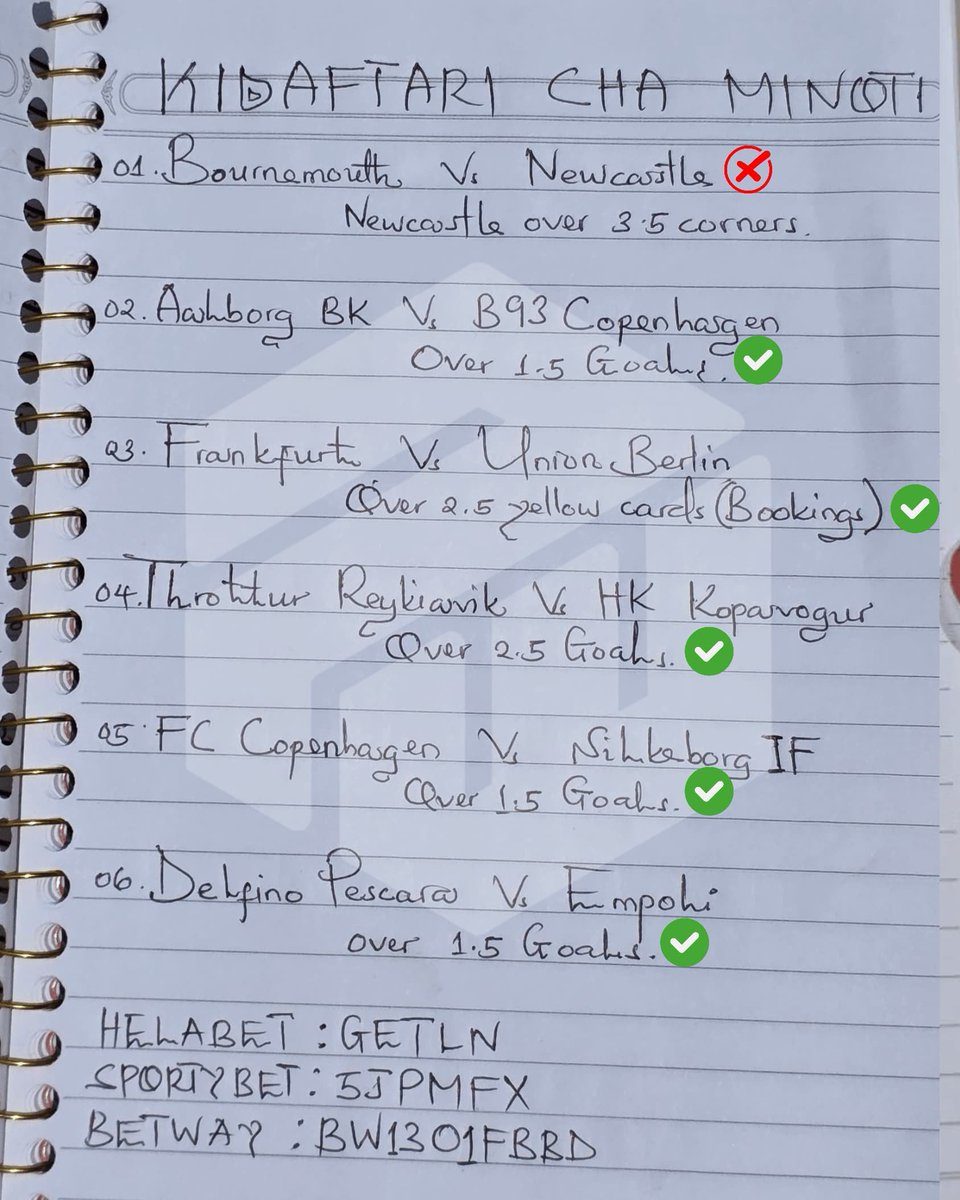 KIDAFTARI CHA MINOTI
01. Bournemouth Vs Newcastle
Newcastle over 3.5 corners.
02. Aalborg BK Vs B93 Copenhagen
Over 1.5 Goals.
03. Frankfurt Vs Union Berlin
Over 2.5 yellow cards (Bookings)
04. Throttur Reykiavik Vs HK Kopavogur
Over 2.5 Goals.
05. FC Copenhagen Vs Silkeborg IF
Over 1.5 Goals.
06. Delfino Pescara Vs Empoli
over 1.5 Goals.
HELABET : GETLN
SPORTYBET : 5JPMFX
BETWAY : BW1301FBBD